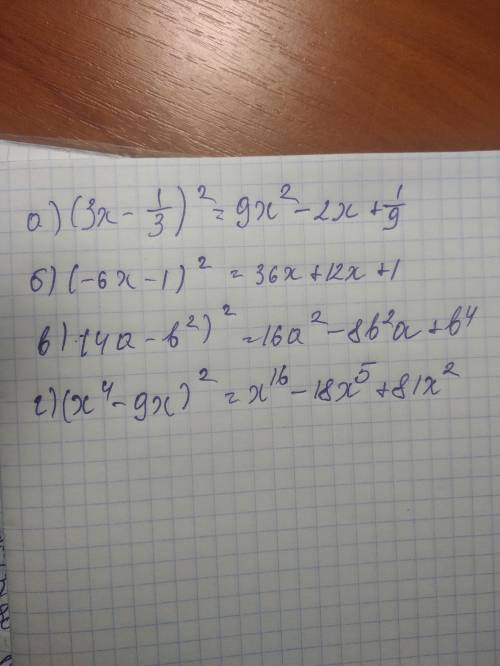 а) (3x - 1/3)² = 9x² - 2x + 1/9
б) (-6x - 1)² = 36x + 12x + 1
в) (4a - b²)² = 16a² - 8b²a + b⁴
г) (x⁴ - 9x)² = x¹⁶ - 18x⁵ + 81x²